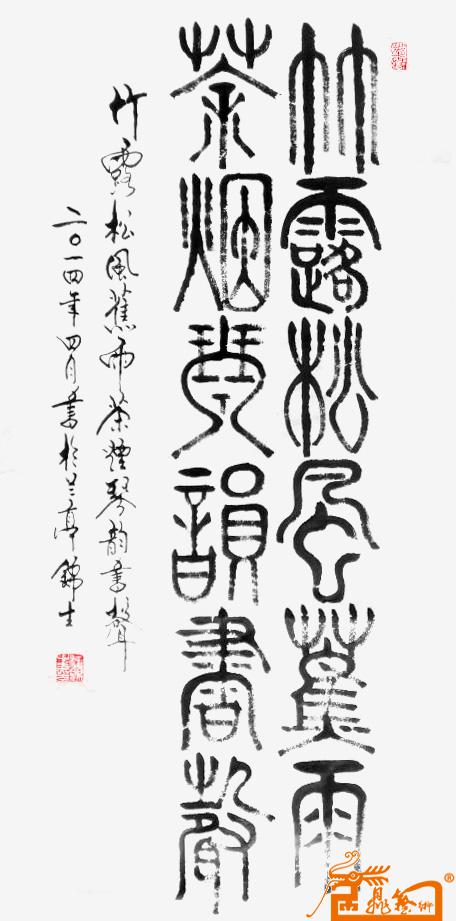 竹露松風蕉雨
茶烟琴韻書聲
竹露松風蕉雨茶煙琴韻書聲
二〇一四年四月書於兰亭錦生